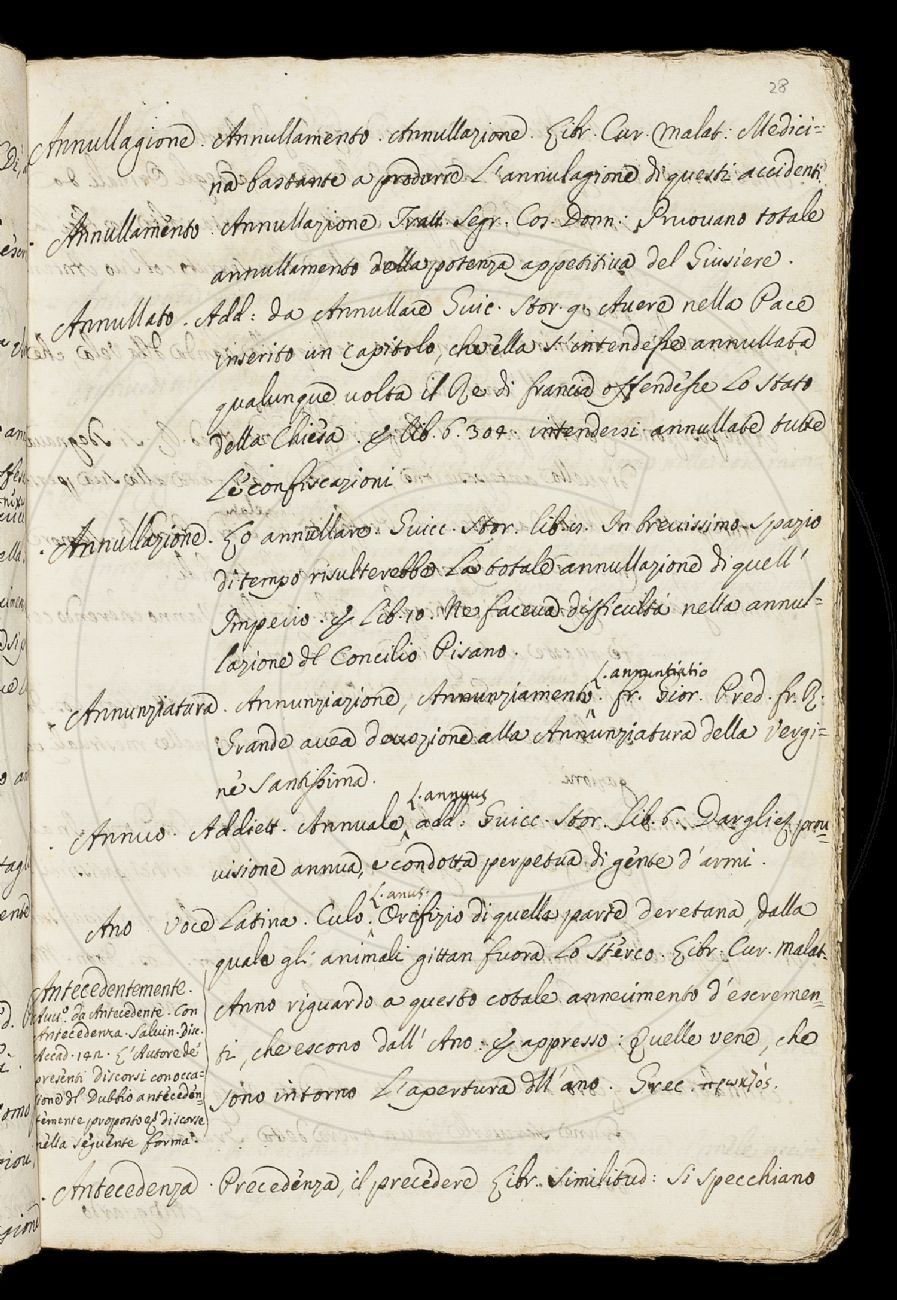 28
Annullagione. Annullamento. Annullazione. Libr. Cur. Malat: Medici=
na bastante a produrre L'annulagione di questi accidenti
Annullamento. Annullazione. Tratt. Segr. Cos. Donn: Pruovano totale
annullamento della potenza appetitiva del Giusiere.
Annullato. Add: da Annullare Guic. Stor. 9. Avere nella Pace
inserito un capitolo, che ella s'intendesse annullata
qualunque volta il Re di francia offendesse Lo Stato
della Chiesa. & Lib. 6. 304. intendersi annullate tutte
Le confiscazioni
Annullazione. Lo annullare. Guicc. Stor. lib. In brevissimo spazio
di tempo risulterebbe La totale annullazione di quell'
Imperio. & Lib. 10. Ne faceva difficultà nella annul=
lazione dl Concilio Pisano.
L. annuntiatio
Annunziatura. Annunziazione, Annunziamento. fr. Gior. Pred. fr. R.
Grande avea devozione alla Annunziatura della Vergi=
ne Santissima.
L. annuus
Annuo. Addiett. Annuale, add: Guicc. Stor. Lib. 6. Dargli prov=
visione annua, e condotta perpetua di gente d'armi.
L. anus.
Ano voce Latina. Culo. Orifizio di quella parte deretana, dalla
quale gli animali gittan fuora Lo sterco. Libr. Cur. Malat.
Anno riguardo a questo cotale annerimento d'escremen=
ti, che escono dall'Ano: & appresso: Quelle vene, che
sono intorno L'apertura dll'ano. Grec. πρωκτός.
Antecedentemente.
Avv.º da Antecedente. Con
Antecedenza. Salvin. Dis.
Accad. 142. L'Autore de
presenti discorsi con occa=
sione dl Dubbio anteceden=
temente proposto e discorse
nella seguente forma.
Antecedenza. Precedenza, il precedere Libr. Similitud: Si specchiano